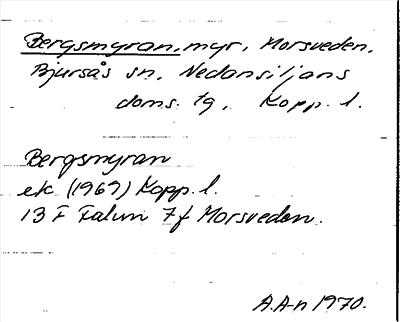 Bergsmyran, myr, Morsveden,
Bjursås sn, Nedansiljans
doms. tg, Kopp. l.
Bergsmyran
ek (1969) Kopp. l.
13 F Falun 7f Morsveden.
A.A-n 1970.